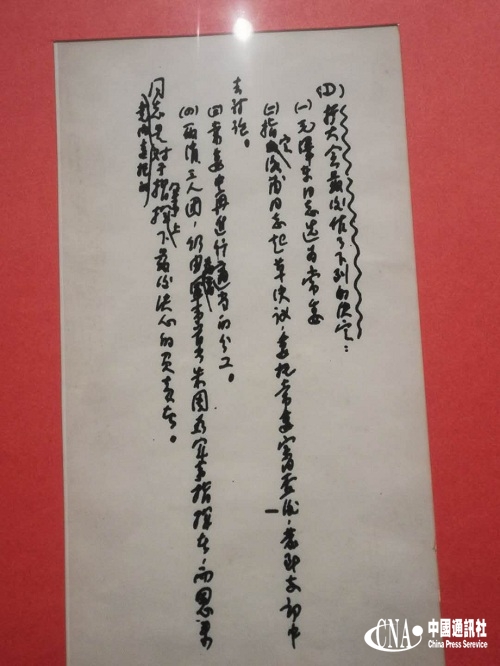 (D)扩大会最后作了下列的决定：
(一)毛澤东同志选为常委
(二)指定洛甫同志起草决议，委托常委审查后，发到支部中
去讨论。
(三)常委中再进行适当的分工。
(四)取消三人团，仍由最高军事首长朱周为军事指挥者，而恩来
同志是党内委托的对于指挥军事上下最后决心的负责者。
CNA 中國通訊社
China Press Serevice